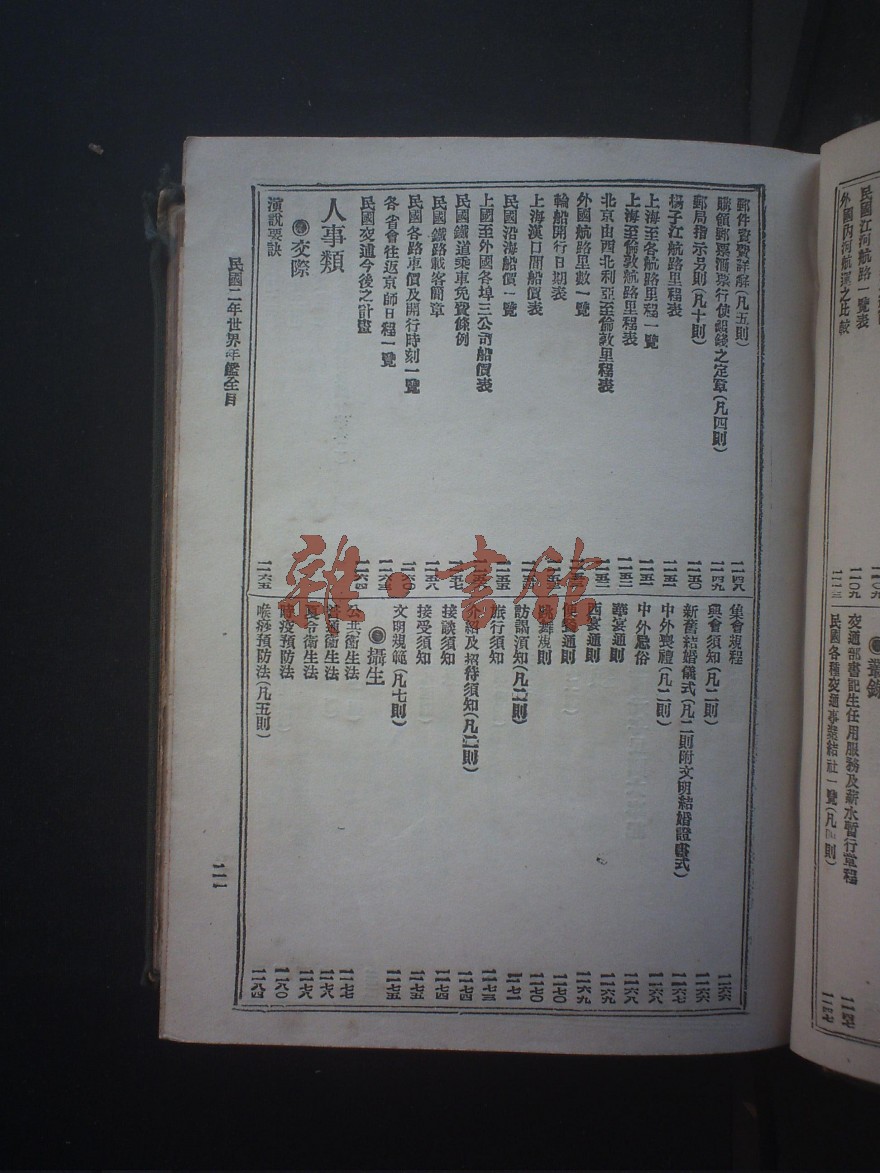 民國江河航路一覽表
外國內河航運之比較
一一〇九
一一一二
叢錄
交通部書記生任用服務及薪水暫行章程
民國各種交通事業結社一覽(凡四則)
郵件資費詳解(凡五則)
一一四八
購領郵票滙票行使銀錢之定章(凡四則)
一一四九
郵局指示另則(凡十則)
一一五〇
楊子江航路里程表
一一五一
上海至各航路里程一覽
一一五一
上海至倫敦航路里程表
一一五二
北京由西北利亞至倫敦里程表
一一五二
外國航路里數一覽
輪船開行日期表
上海漢口間船價表
民國沿海船價一覽
一一五五
上國至外國各埠三公司船價表
民國鐵道乘車免費條例
一一五七
民國鐵路載客簡章
一一五八
民國各路車價及開行時刻一覽
一一六〇
各省會往返京師日程一覽
一一六三
民國交通今後之計畫
一一六四
人事類
交際
演說要訣
一一六五
集會規程
一一六六
與會須知(凡二則)
一一六六
新舊結婚儀式(凡二則附文明結婚證書式)
一一六七
中外喪禮(凡二則)
一一六八
中外忌俗
一一六八
華宴通則
一一六九
西宴通則
一一六九
便宴通則
一一七〇
跳舞規則
一一七〇
訪謁須知(凡二則)
一一七一
旅行須知
一一七三
介紹及招待須知(凡二則)
一一七四
接談須知
一一七四
接受須知
一一七五
文明規範(凡七則)
一一七五
攝生
公共衞生法
一一七七
普通衞生法
一一七八
夏令衞生法
一一七八
時疫預防法
一一八〇
喉痧預防法(凡五則)
一一八四
民國二年世界年鑑全目
雜·書館